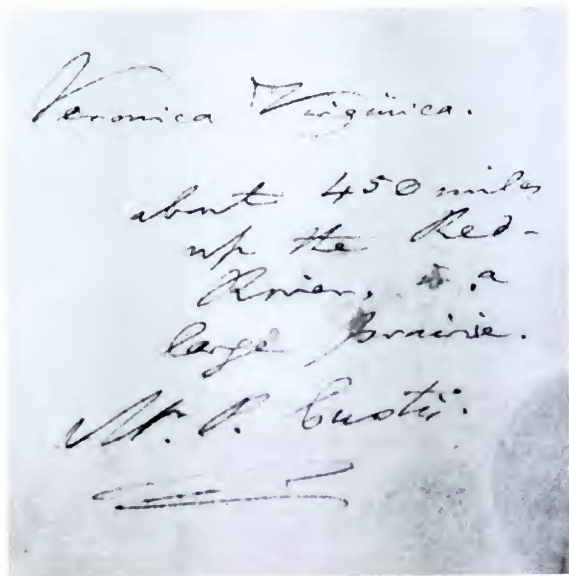 Veronica Virginica.
about 450 miles
up the Red-
River, in a
large prairie.
Mr. P. Custis.